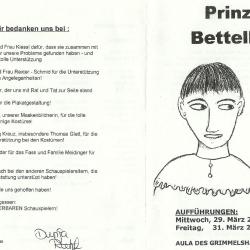 ir bedanken uns bei :
d Frau Kiesel dafür, dass sie zusammen mit
r unsere Probleme gefunden haben - und
tolle Unterstützung
d Frau Reiser - Schmid für die Unterstützung
Angelegenheiten!
r, der uns mit Rat und Tat zur Seite stand
r die Plakatgestaltung!
, unserer Maskenbildnerin, für die tolle
miger Kostüme!
Kreuz, insbesondere Thomas Gleß, für die
terstützung bei den Kostümen!
der für das Fass und Familie Meidinger für
ch bei den anderen Schauspielleitern, die
staltung unterstützt haben!
le uns geholfen haben!
gessen:
ERBAREN Schauspielern!
Prinz
Bettell
AUFFÜHRUNGEN:
Mittwoch, 29. März 2
Freitag, 31. März
AULA DES GRIMMELS